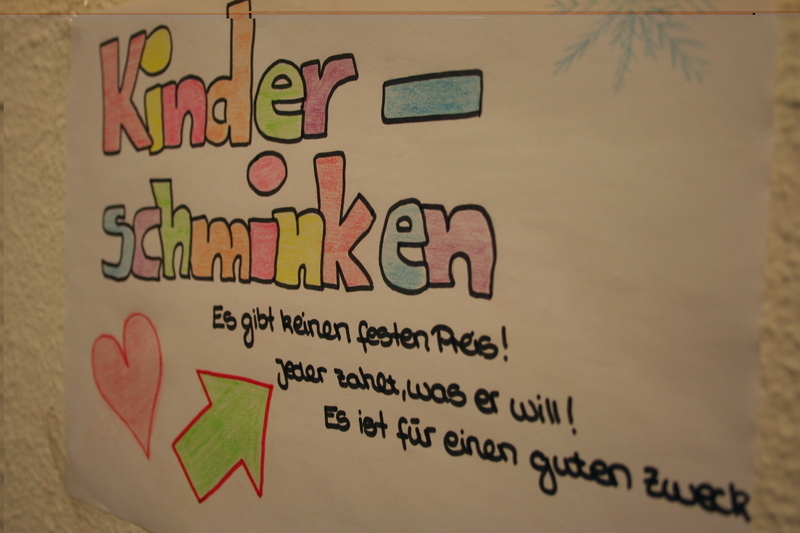 Kinder-
schminken
Es gibt keinen festen Preis!
jeder zahlt, was er will!
Es ist für einen guten Zweck